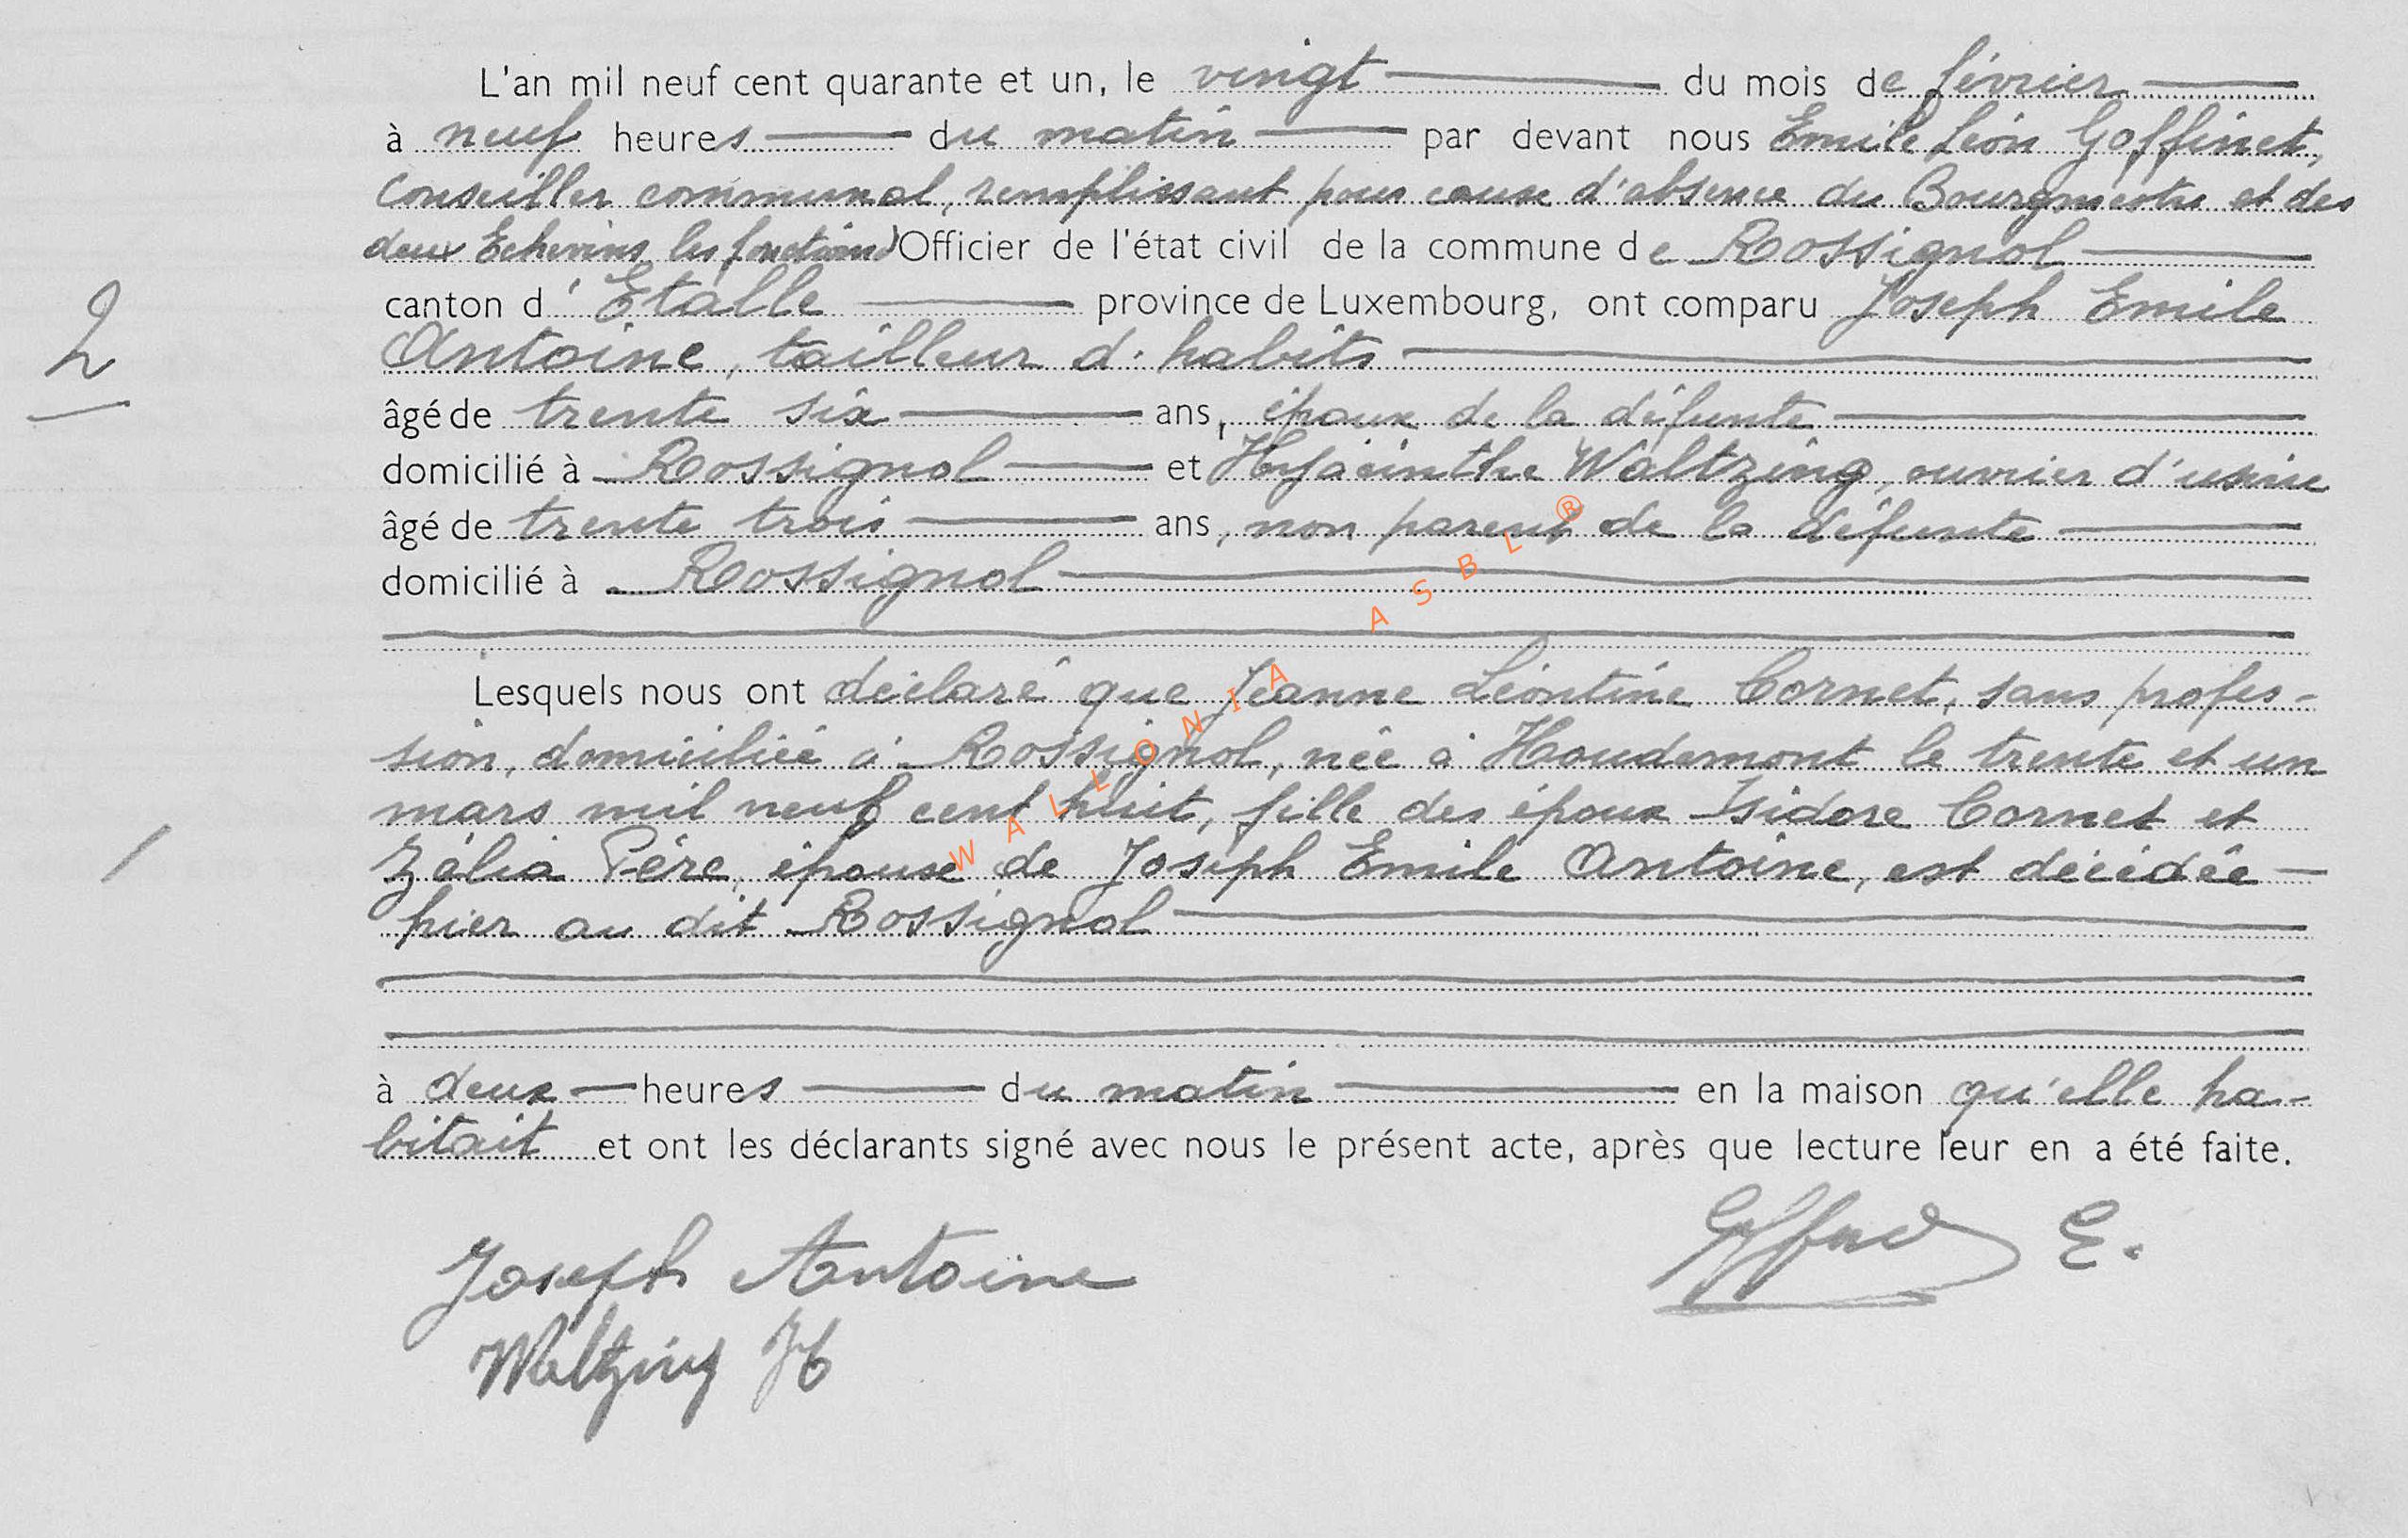 L'an mil neuf cent quarante et un, le vingt du mois de février
à neuf heures du matin par devant nous Emile Léon Goffinet,
Conseiller communal, remplissant pour cause d'absence du Bourgmestre et des
deux Echevins les fonctions Officier de l'état civil de la commune de Rossignol
2
canton d'Etalle province de Luxembourg, ont comparu Joseph Emile
Antoine, tailleur d'habits
âgé de trente six ans, époux de la défunte
domicilié à Rossignol et Hyacinthe Waltzing, ouvrier d'usine
âgé de trente trois ans, non parent de la défunte
domicilié à Rossignol
Lesquels nous ont déclaré que Jeanne Léontine Cornet, sans profes-
sion, domiciliée à Rossignol, née à Houdemont le trente et un
mars mil neuf cent huit, fille des époux Isidore Cornet et
Zélia Père, épouse de Joseph Emile Antoine, est décédée
hier au dit Rossignol
à deux heures du matin en la maison qu'elle ha-
bitait et ont les déclarants signé avec nous le présent acte, après que lecture leur en a été faite.
Joseph Antoine
Goffinet E.
Waltzing H
WALLONIA ASBL ®